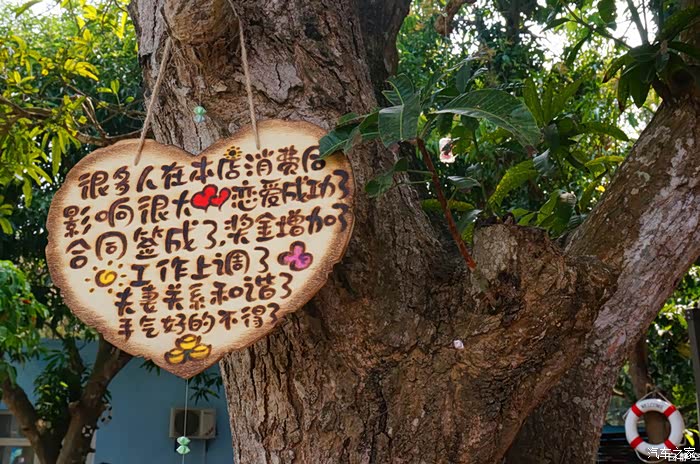 很多人在本店消费后
影响很大恋爱成功了
合同签成了,奖金增加了
工作上调了
夫妻关系和谐了
手气好的不得了
WELCOME
汽车之家